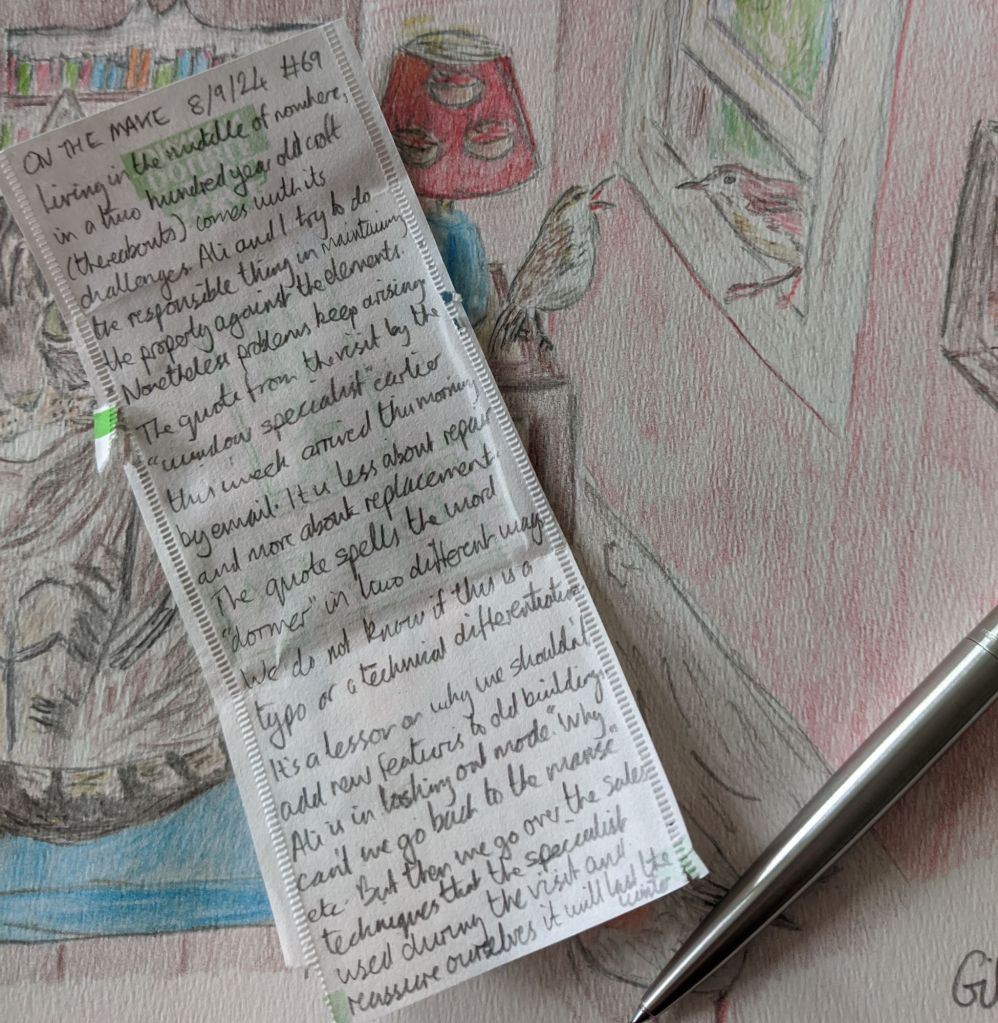 ON THE MAKE 8/9/24 #69
Living in the middle of nowhere,
in a two hundred year old croft
(thereabouts) comes with its
challenges. Ali and I try to do
the responsible thing in maintaining
the property against the elements.
Nonetheless problems keep arising
The quote from the visit by the
"window specialist" earlier
this week arrived this morning
by email. It is less about repair
and more about replacement.
The quote spells the word
"dormer" in two different ways
We do not know if this is a
typo or a technical differentiation
It's a lesson on why we shouldn't
add new features to old buildings
Ali is in lashing out mode. "Why
can't we go back to the manse"
etc. But then we go over the sales
techniques that the specialist
used during the visit and
reassure ourselves it will last the
winter
Gil